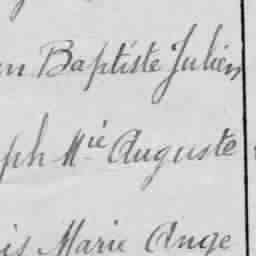 en Baptiste Julien
ph Mie Auguste
is Marie Ange